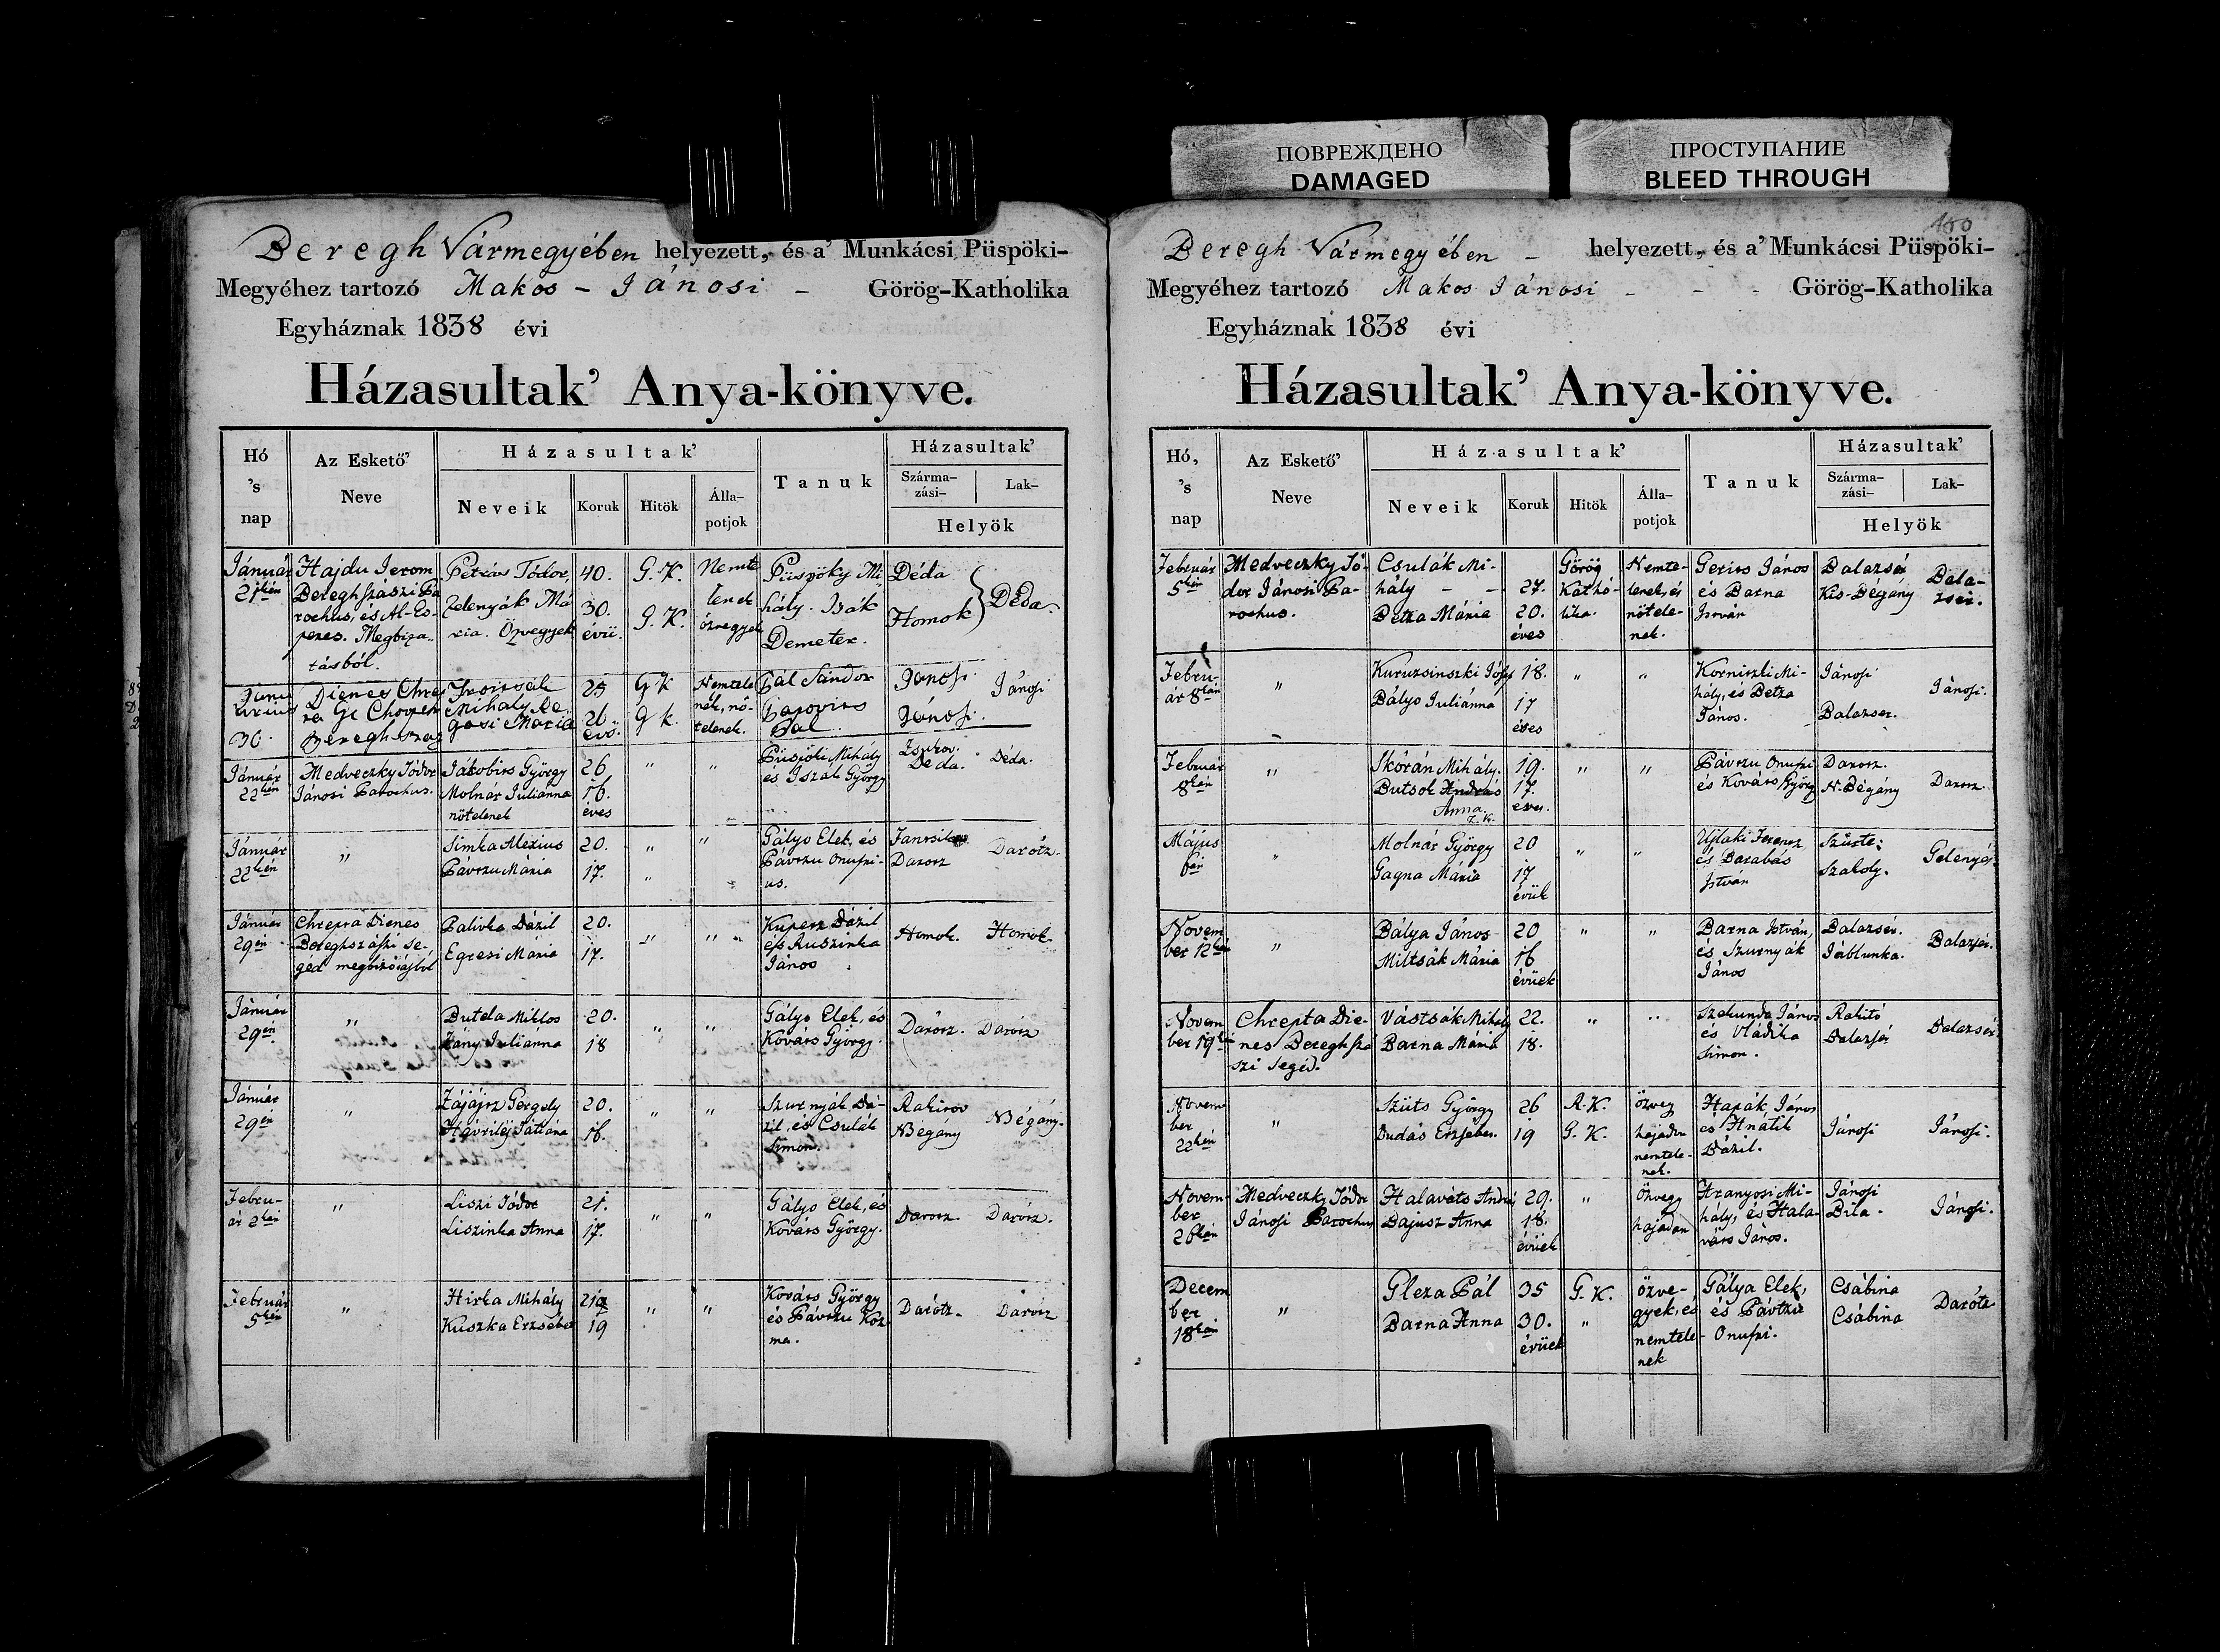 ПОВРЕЖДЕНО
DAMAGED
ПРОСТУПАНИЕ
BLEED THROUGH
Beregh Vármegyében helyezett, és a' Munkácsi Püspöki-
Megyéhez tartozó Makos - Jánosi - Görög-Katholika
Egyháznak 1838 évi
Házasultak' Anya-könyve.
Hó 's nap
Az Eskető' Neve
Házasultak'
Neveik
Koruk
Hitök
Álla-
potjok
Tanuk
Házasultak'
Szárma-
zási-
Lak-
Helyök
Január 21kén
Hajdu Jerom
Beregh szászi Pa
rochus, és Al-Es-
peres. Megbiza-
tásból.
Petrás Tódor,
Zelenyák Má
ria. Özvegyek
40.
30.
évü.
G. K.
G. K.
Nemte
lenek
özvegyek
Püspöky Mi
hály. Isák
Demeter.
Déda
Homok
Déda.
30.
Dienes
Mihály
Maria
25
26
évs.
G K
G k.
Nemtele
nek, nö-
telenek.
Gál Sándor
Pal
Jánosi
Jánosi.
Jánosi
Január
22kén
Medveczky Tódor
Jánosi Parochus.
Jakobics György
Molnár Julianna
nötelenek
26
16.
éves
"
"
Püspöki Mihály
és Iszák György
Déda.
Déda.
Január
22kén
"
Simka Alexius
Pávczu Mária
20.
17.
"
"
"
Gályo Elek, és
Pávczu Onufri-
us.
Darocz
Darótz.
Január
29én
Chrepta Dienes
Bereghszászi Se-
géd
Palivka Bázil
Egresi Mária
20.
17.
"
"
Kuperz Bázil
és Ruszinka
János
Homok.
Homok
Január
29én
"
Butela Miklos
Zány Julianna
20.
18
"
"
Gályo Elek, és
Kovács György.
Darócz.
Darócz
Január
29én
"
Zájájcz Gergely
Havriléj Tattána
20.
16.
"
"
Szurnyák Bá-
zil, és Csulák
Simon.
Rakirov
N Bégány
N Bégány.
Febru-
ár 2kán
"
Liszi Tódor
Liszinka Anna
21.
17.
"
"
Gályo Elek, és
Kovács György.
Darocz.
Darócz.
Február
5kén
"
Hirka Mihály
Kuszka Erzsébet
19
"
"
Kovács György
és Pávczu Koz
ma.
Darótz.
Darócz
150
Beregh Vármegyében - helyezett, és a' Munkácsi Püspöki-
Megyéhez tartozó Makos Jánosi - - - Görög-Katholika
Egyháznak 1838 évi
Házasultak' Anya-könyve.
Hó, 's nap
Az Eskető' Neve
Házasultak'
Neveik
Koruk
Hitök
Álla-
potjok
Tanuk
Házasultak'
Szárma-
zási-
Lak-
Helyök
Február
5kén
Medveczky Tó-
dor Jánosi Pa-
rochus.
Csulák Mi-
hály - -
Petra Mária
27.
20.
éves
Görög
Kathó-
lika.
Nemte-
lenek, és
nötele-
nek.
Gerics János
és Barna
István
Balazsér
Kis-Bégány
Bala-
zsér.
Febru-
ár 8kán
"
Kuruzsinszki Jósef
Bályo Juliánna
18.
17
éves
"
"
Korniszki Mi-
hály, és Betza
János.
Jánosi
Balazser.
Jánosi.
Február
8kán
"
Skórán Mihály.
Butsok András
Anna.
19.
17.
éves.
"
"
Pávczu Onufri
és Kovács György
Darocz.
N. Bégány
Darocz
Május
6án
"
Molnár György
Gagna Mária
20
17
évük
"
"
Ujlaki Ferencz
és Barabás
István
Szürte:
Szakoly.
Gelenyés
Novem
ber 12kén
"
Bálya János
Miltsák Mária
20
16
évüek
"
"
Barna István,
és Szurnyák
János
Balazsér.
Jáblunka.
Balazsér.
Novem
ber 19kén
Chrepta Die-
nes Bereghszá
szi segéd.
Vástsák Mihály
Barna Mária
22.
18.
"
"
Szekunda János
és Vládika
Simon.
Rakitó
Balazsér
Balazsér
Novem
ber
22kén
"
Szüts György
Dudás Erzsébet.
26
19
R. K.
G. K.
özveg
hajadon
nemtele-
nek.
Hapák János
és Hnátik
Bázil.
Jánosi
Jánosi.
Novem-
ber
26kán
Medveczky Tódor
Jánosi Parochus
Halaváts András
Bajusz Anna
29.
18.
évüek
"
özvegy
hajadon
Aranyosi Mi-
hály, és Hala-
váts János.
Jánosi
Bila.
Jánosi.
Decem
ber
18kán
"
Gleza Pál
Barna Anna
35
30.
évüek
G. K.
"
özve-
gyek, és
nemtele-
nek
Gálya Elek,
és Pávtzu
Onufri.
Csábina
Csábina
Darótz